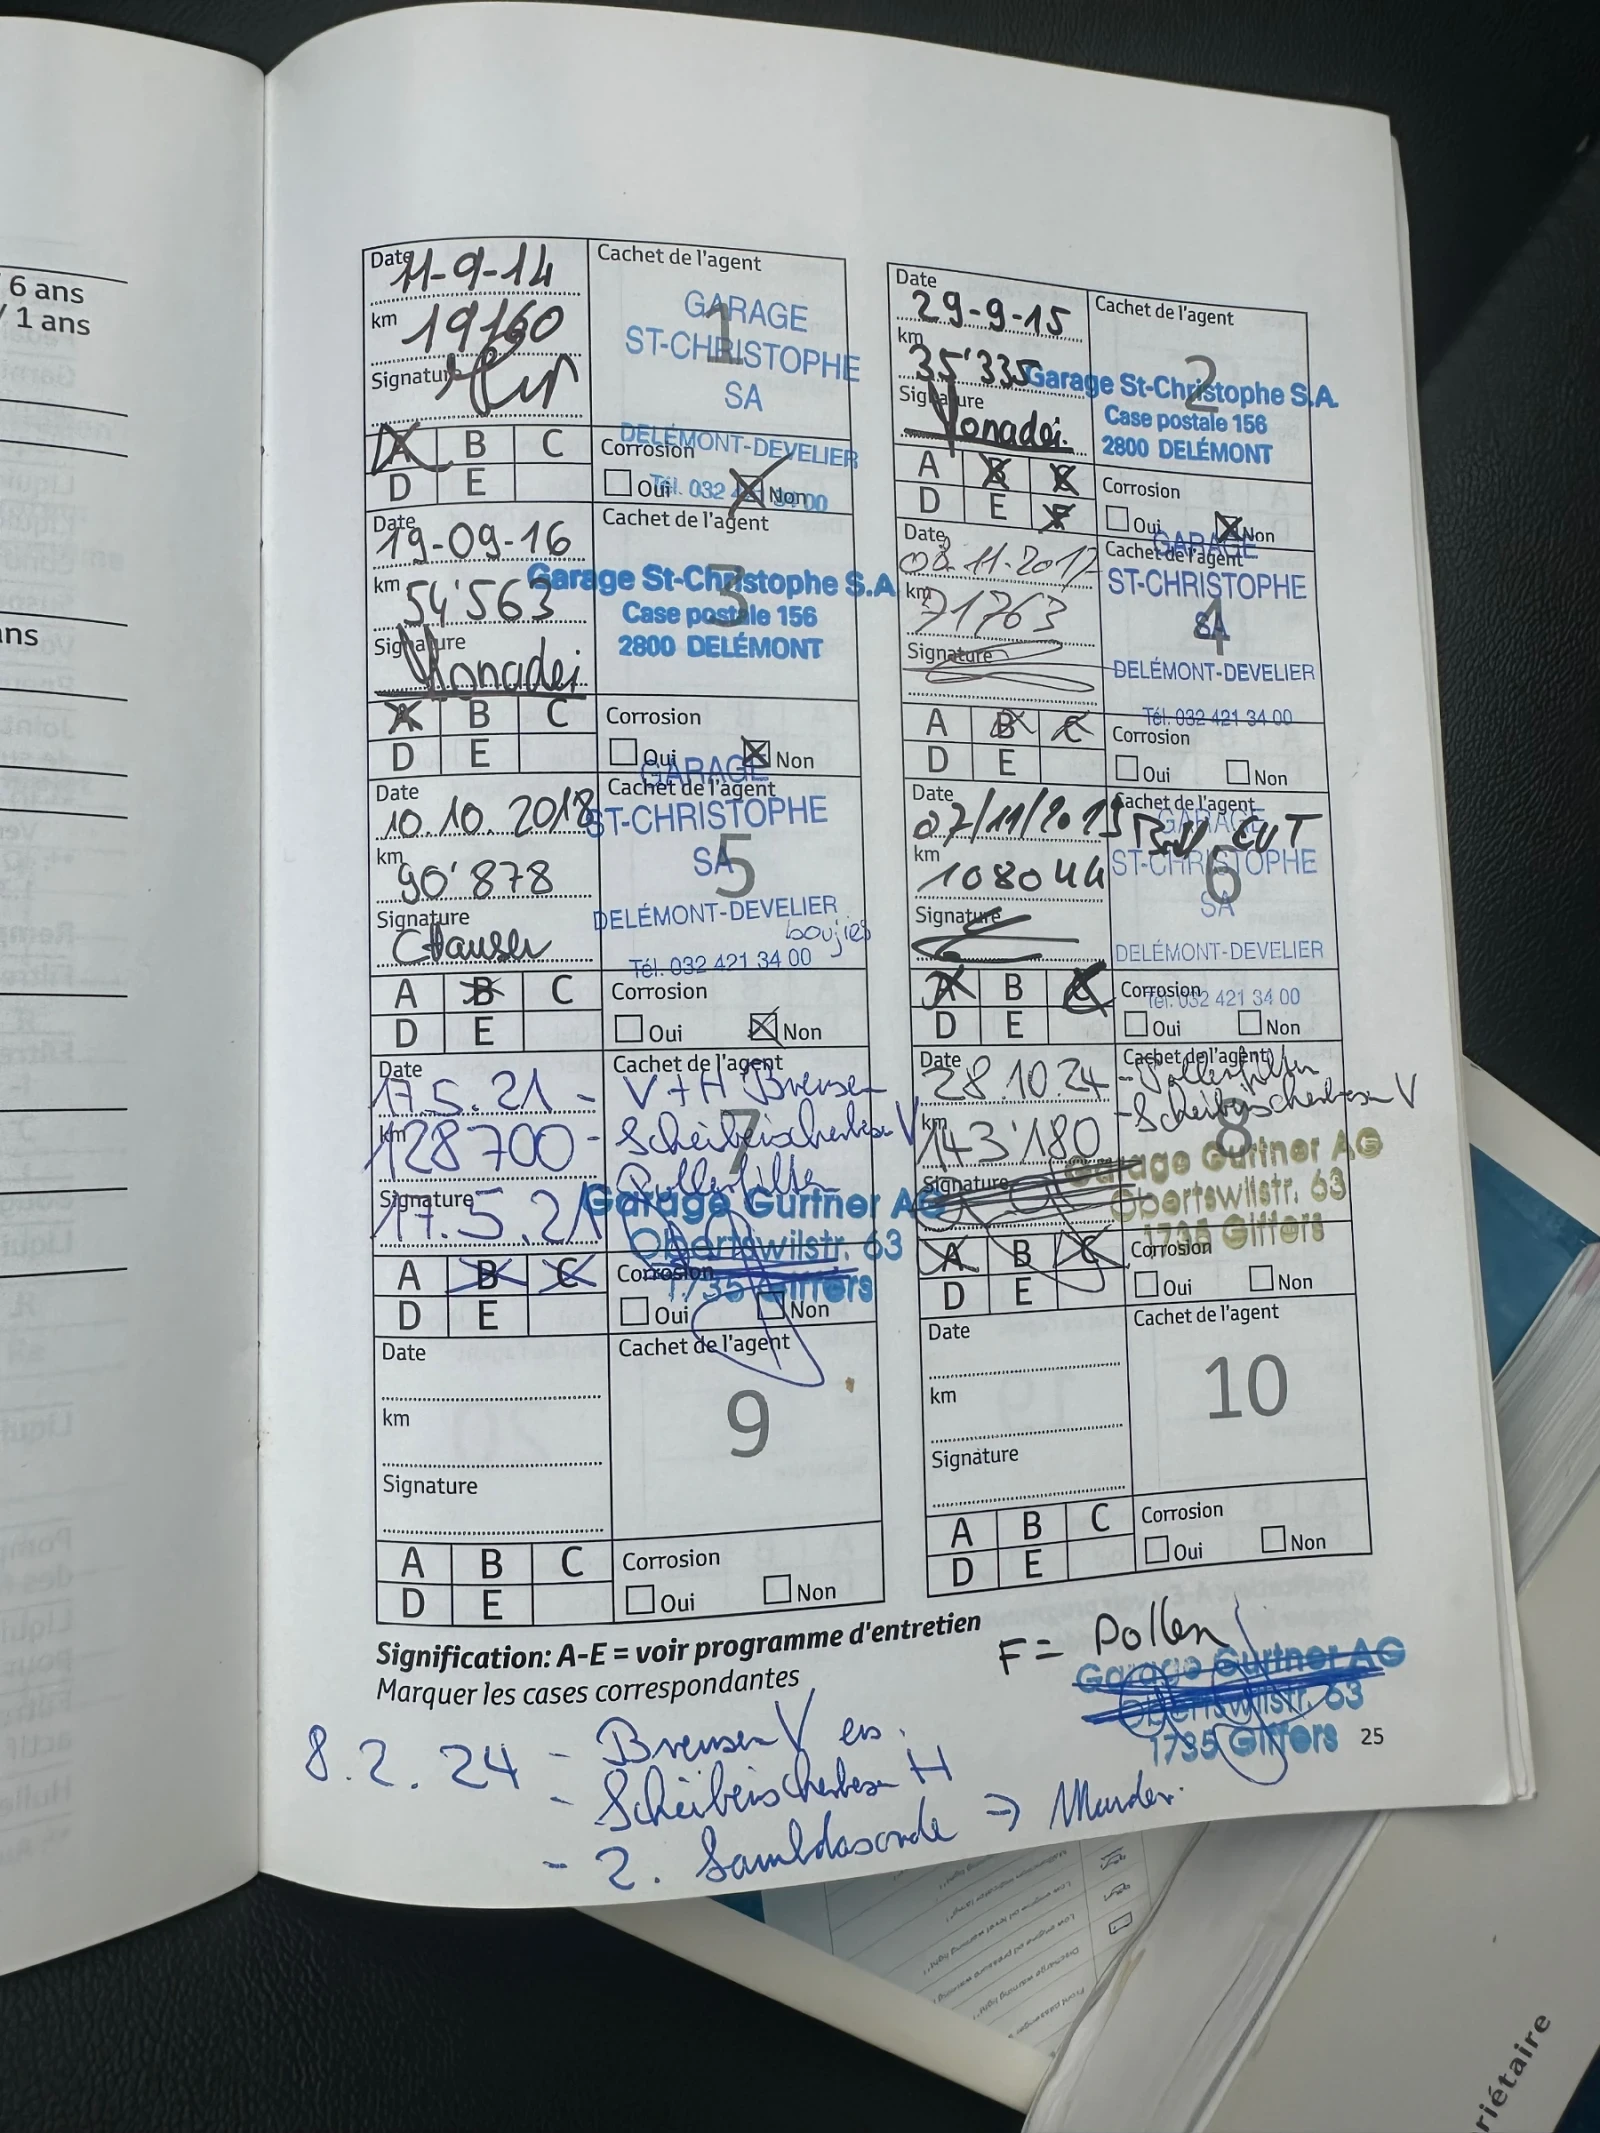 6 ans
/ 1 ans
ans
Date 11-9-14
km 19160
Signature
Cachet de l'agent
1
GARAGE
ST-CHRISTOPHE
SA
DELÉMONT-DEVELIER
Tél. 032 421 34 00
A B C
D E
Corrosion
Oui Non
Date 29-9-15
km 35'335
Signature Monadei
Cachet de l'agent
2
Garage St-Christophe S.A.
Case postale 156
2800 DELÉMONT
A B C
D E F
Corrosion
Oui Non
Date 19-09-16
km 54'563
Signature Monadei
Cachet de l'agent
3
Garage St-Christophe S.A.
Case postale 156
2800 DELÉMONT
A B C
D E
Corrosion
Oui Non
Date 08.11.2017
km 71763
Signature
Cachet de l'agent
4
GARAGE
ST-CHRISTOPHE
SA
DELÉMONT-DEVELIER
Tél. 032 421 34 00
A B C
D E
Corrosion
Oui Non
Date 10.10.2018
km 90'878
Signature
Cachet de l'agent
5
GARAGE
ST-CHRISTOPHE
SA
DELÉMONT-DEVELIER
boujies
Tél. 032 421 34 00
A B C
D E
Corrosion
Oui Non
Date 07/11/2019
km 108044
Signature
Cachet de l'agent
6
GARAGE
ST-CHRISTOPHE
SA
DELÉMONT-DEVELIER
Tél. 032 421 34 00
A B C
D E
Corrosion
Oui Non
Date 17.5.21
km 128700
Signature 17.5.21
Cachet de l'agent
7
- V + H Bremsen
- Scheibenwischerblätter V
Pollenfilter
Garage Gurtner AG
Obertswilstr. 63
1735 Giffers
A B C
D E
Corrosion
Oui Non
Date 28.10.24
km 143'180
Signature
Cachet de l'agent
8
- Pollenfilter
Garage Gurtner AG
Obertswilstr. 63
1735 Giffers
A B C
D E
Corrosion
Oui Non
Date
km
Signature
Cachet de l'agent
9
A B C
D E
Corrosion
Oui Non
Date
km
Signature
Cachet de l'agent
10
A B C
D E
Corrosion
Oui Non
Signification: A-E = voir programme d'entretien
Marquer les cases correspondantes
F = Pollen
Garage Gurtner AG
Obertswilstr. 63
1735 Giffers
25
8.2.24 - Bremsen V ers.
- H
- 2. →
riétaire